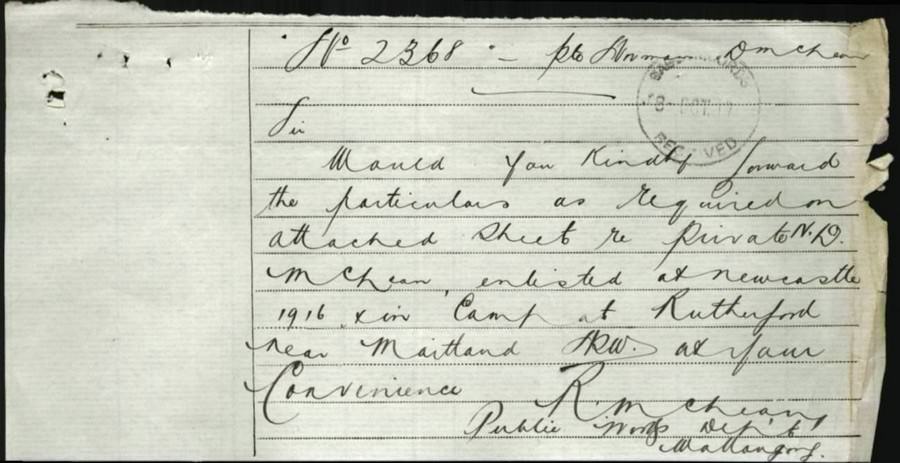 No 2368 - Pte Norman D McLean
RECEIVED
Sir
Would you Kindly forward
the particulars as required on
attached sheet re Private N.D.
McLean, enlisted at Newcastle
1916 & in Camp at Rutherford
near Maitland NSW. at your
Convenience
R. McLean,
Public Works Dept
Wollongong.